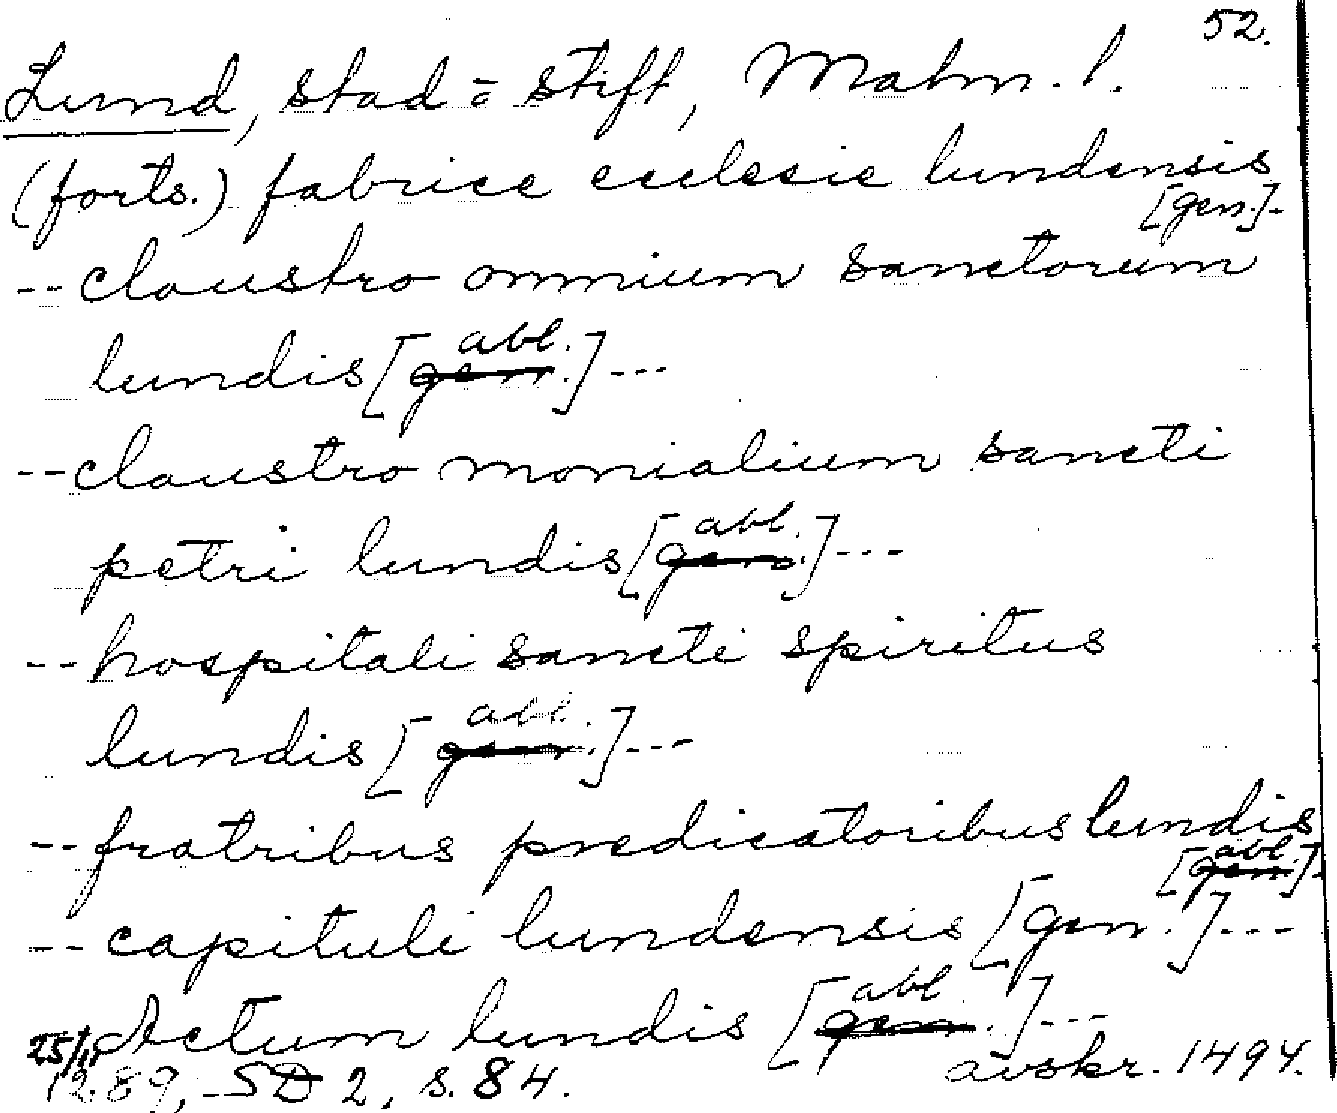 52.
Lund, stad = stift, Malm. l.
(forts.) fabrice ecclesie lundensis
[gen.]-
-- claustro omnium sanctorum
abl.
lundis [gen.]---
-- claustro monialium sancti
abl.
petri lundis [gen.]---
-- hospitali sancti spiritus
abl.
lundis [gen.]---
-- fratribus predicatoribus lundis
abl.
[gen.]-
-- capituli lundensis [gen.]---
abl.
Actum lundis [gen.]---
25/11 1289, SD 2, s. 84. avskr. 1494.